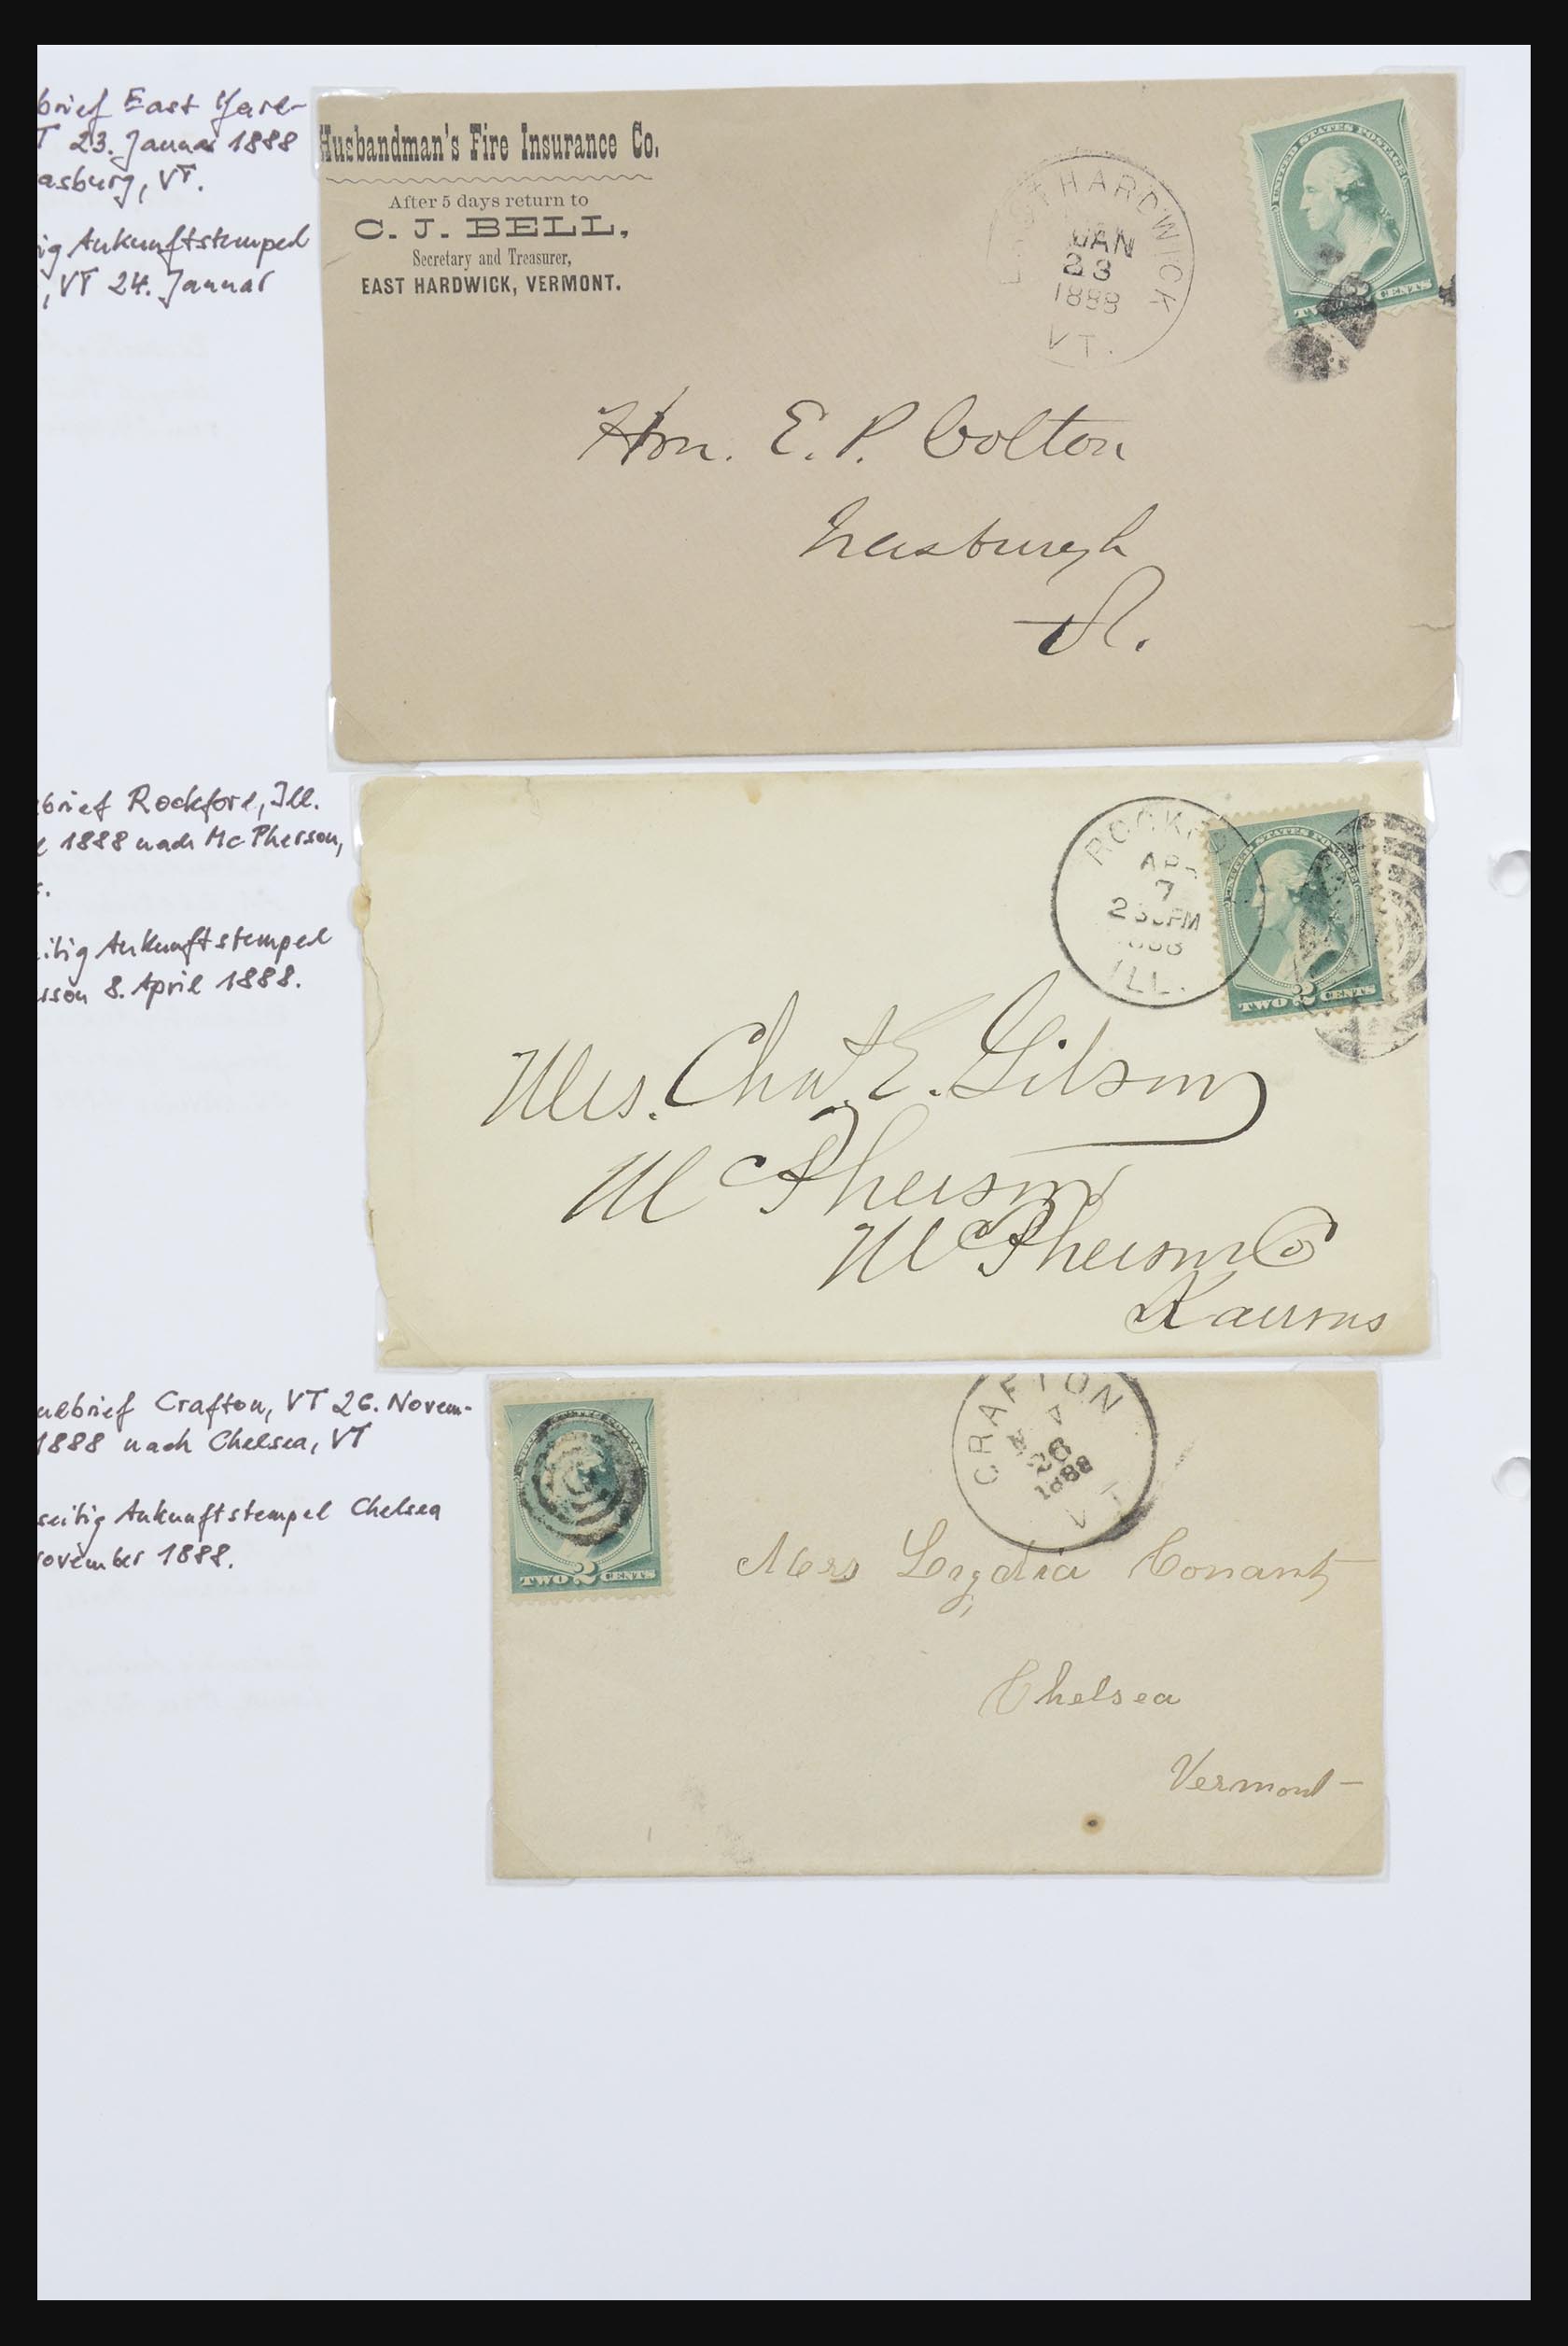 brief East Hard-
T 23. Januar 1888
asburg, VT.
ig Ankunftstempel
, VT 24. Januar
Husbandman's Fire Insurance Co.
After 5 days return to
C. J. BELL,
Secretary and Treasurer,
EAST HARDWICK, VERMONT.
EAST HARDWICK
JAN
23
1888
VT.
UNITED STATES POSTAGE
TWO 2 CENTS
Hon. E. P. Colton
Irasburgh
Vt.
brief Rockford, Ill.
l 1888 nach McPherson,
s.
itig Ankunftstempel
rson 8. April 1888.
ROCKFO
APR
7
2 30 PM
1888
ILL.
UNITED STATES POSTAGE
TWO 2 CENTS
Mrs. Chas. E. Gibson
McPherson
McPherson Co
Kansas
nebrief Crafton, VT 26. Novem-
1888 nach Chelsea, VT
seitig Ankunftstempel Chelsea
ovember 1888.
TWO 2 CENTS
CRAFTON
26
1888
VT
Mrs Lydia Conant
Chelsea
Vermont